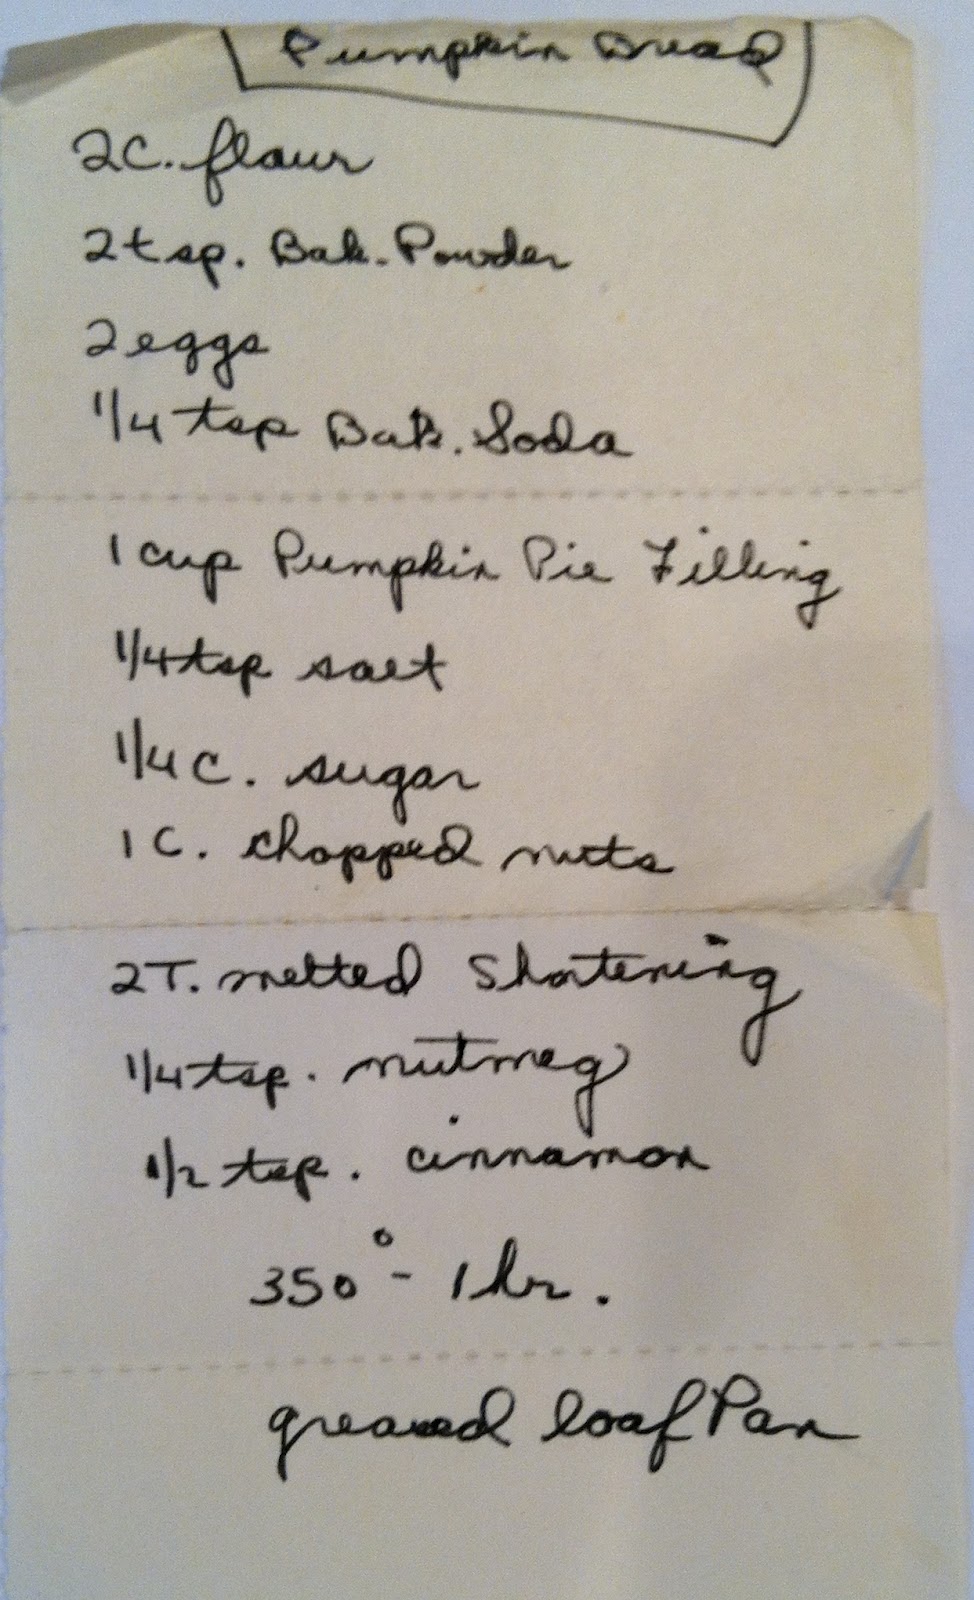 Pumpkin Bread
2C. flour
2tsp. Bak. Powder
2 eggs
1/4 tsp Bak. Soda
1 cup Pumpkin Pie Filling
1/4 tsp salt
1/4 C. sugar
1 C. chopped nuts
2T. melted Shortening
1/4 tsp. nutmeg
1/2 tsp. cinnamon
350° - 1 hr.
greased loaf Pan